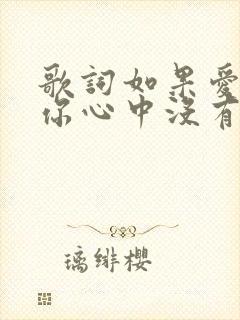 歌詞如果愛
你心中沒有
璃緋櫻